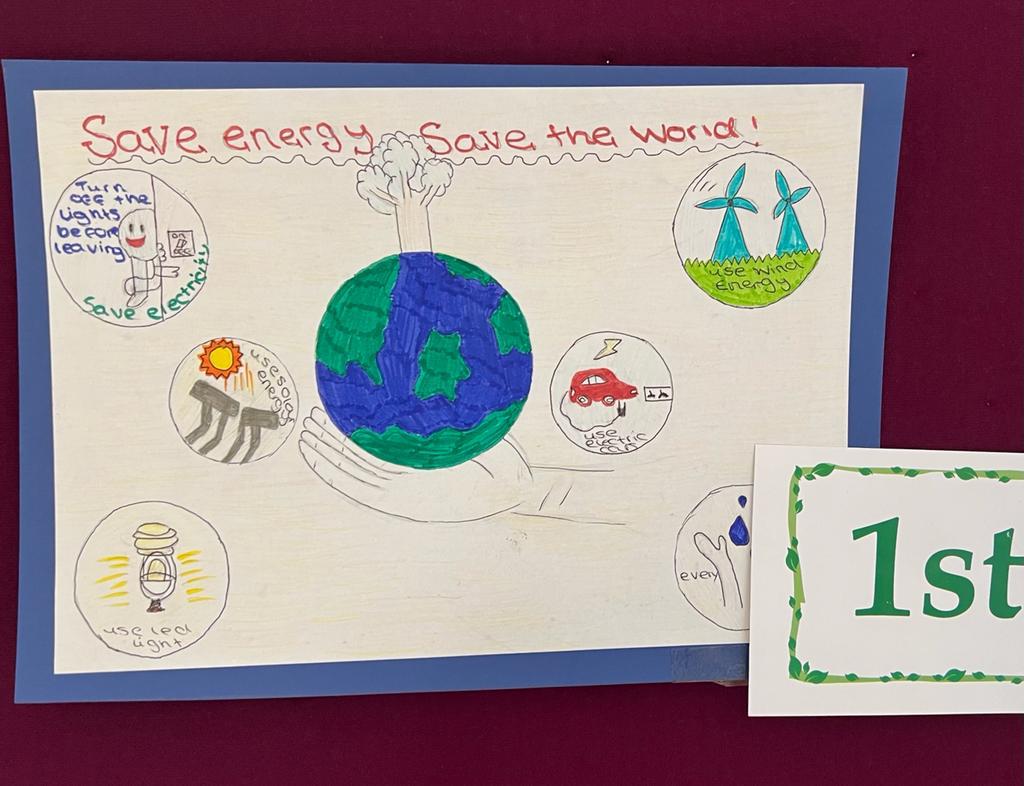 Save energy Save the world!
Turn
off the
lights
before
leaving
on
off
Save electricity
use wind
Energy
use solar
energy
use
electric
cars
use led
light
every
1st